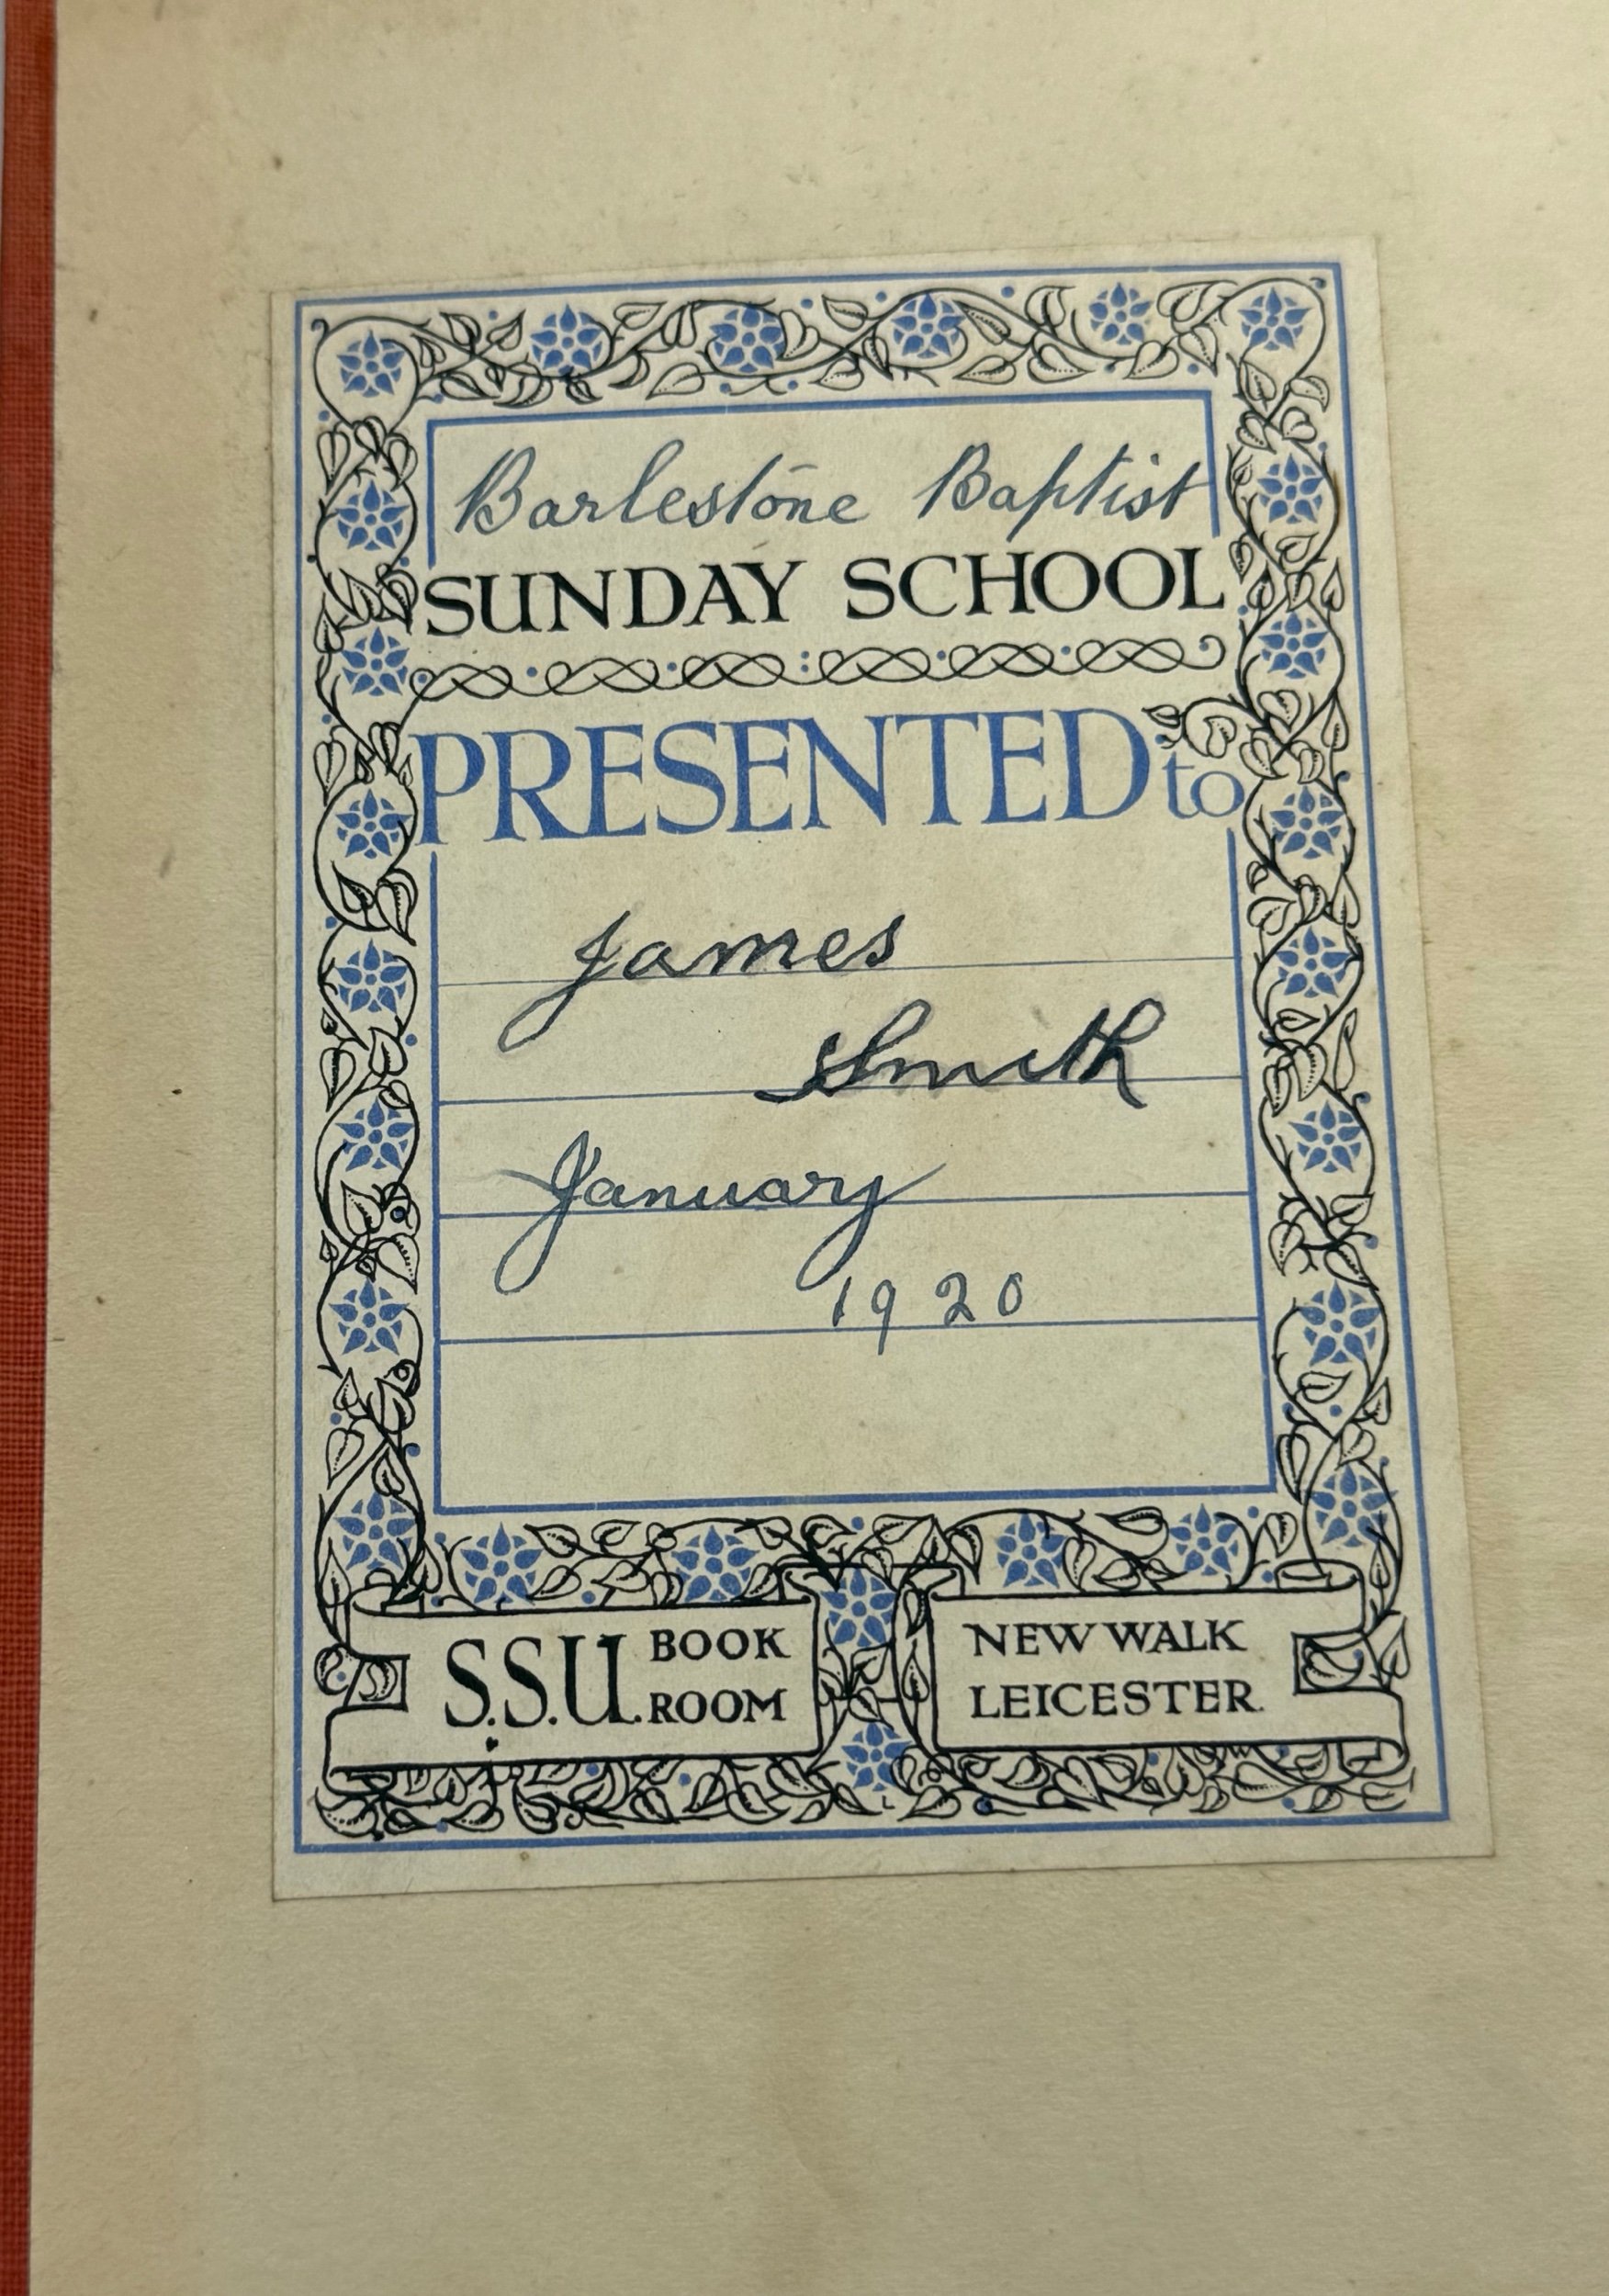 Barlestone Baptist
SUNDAY SCHOOL
PRESENTED to
James
Smith
January
1920
S.S.U. BOOK ROOM
NEW WALK
LEICESTER.